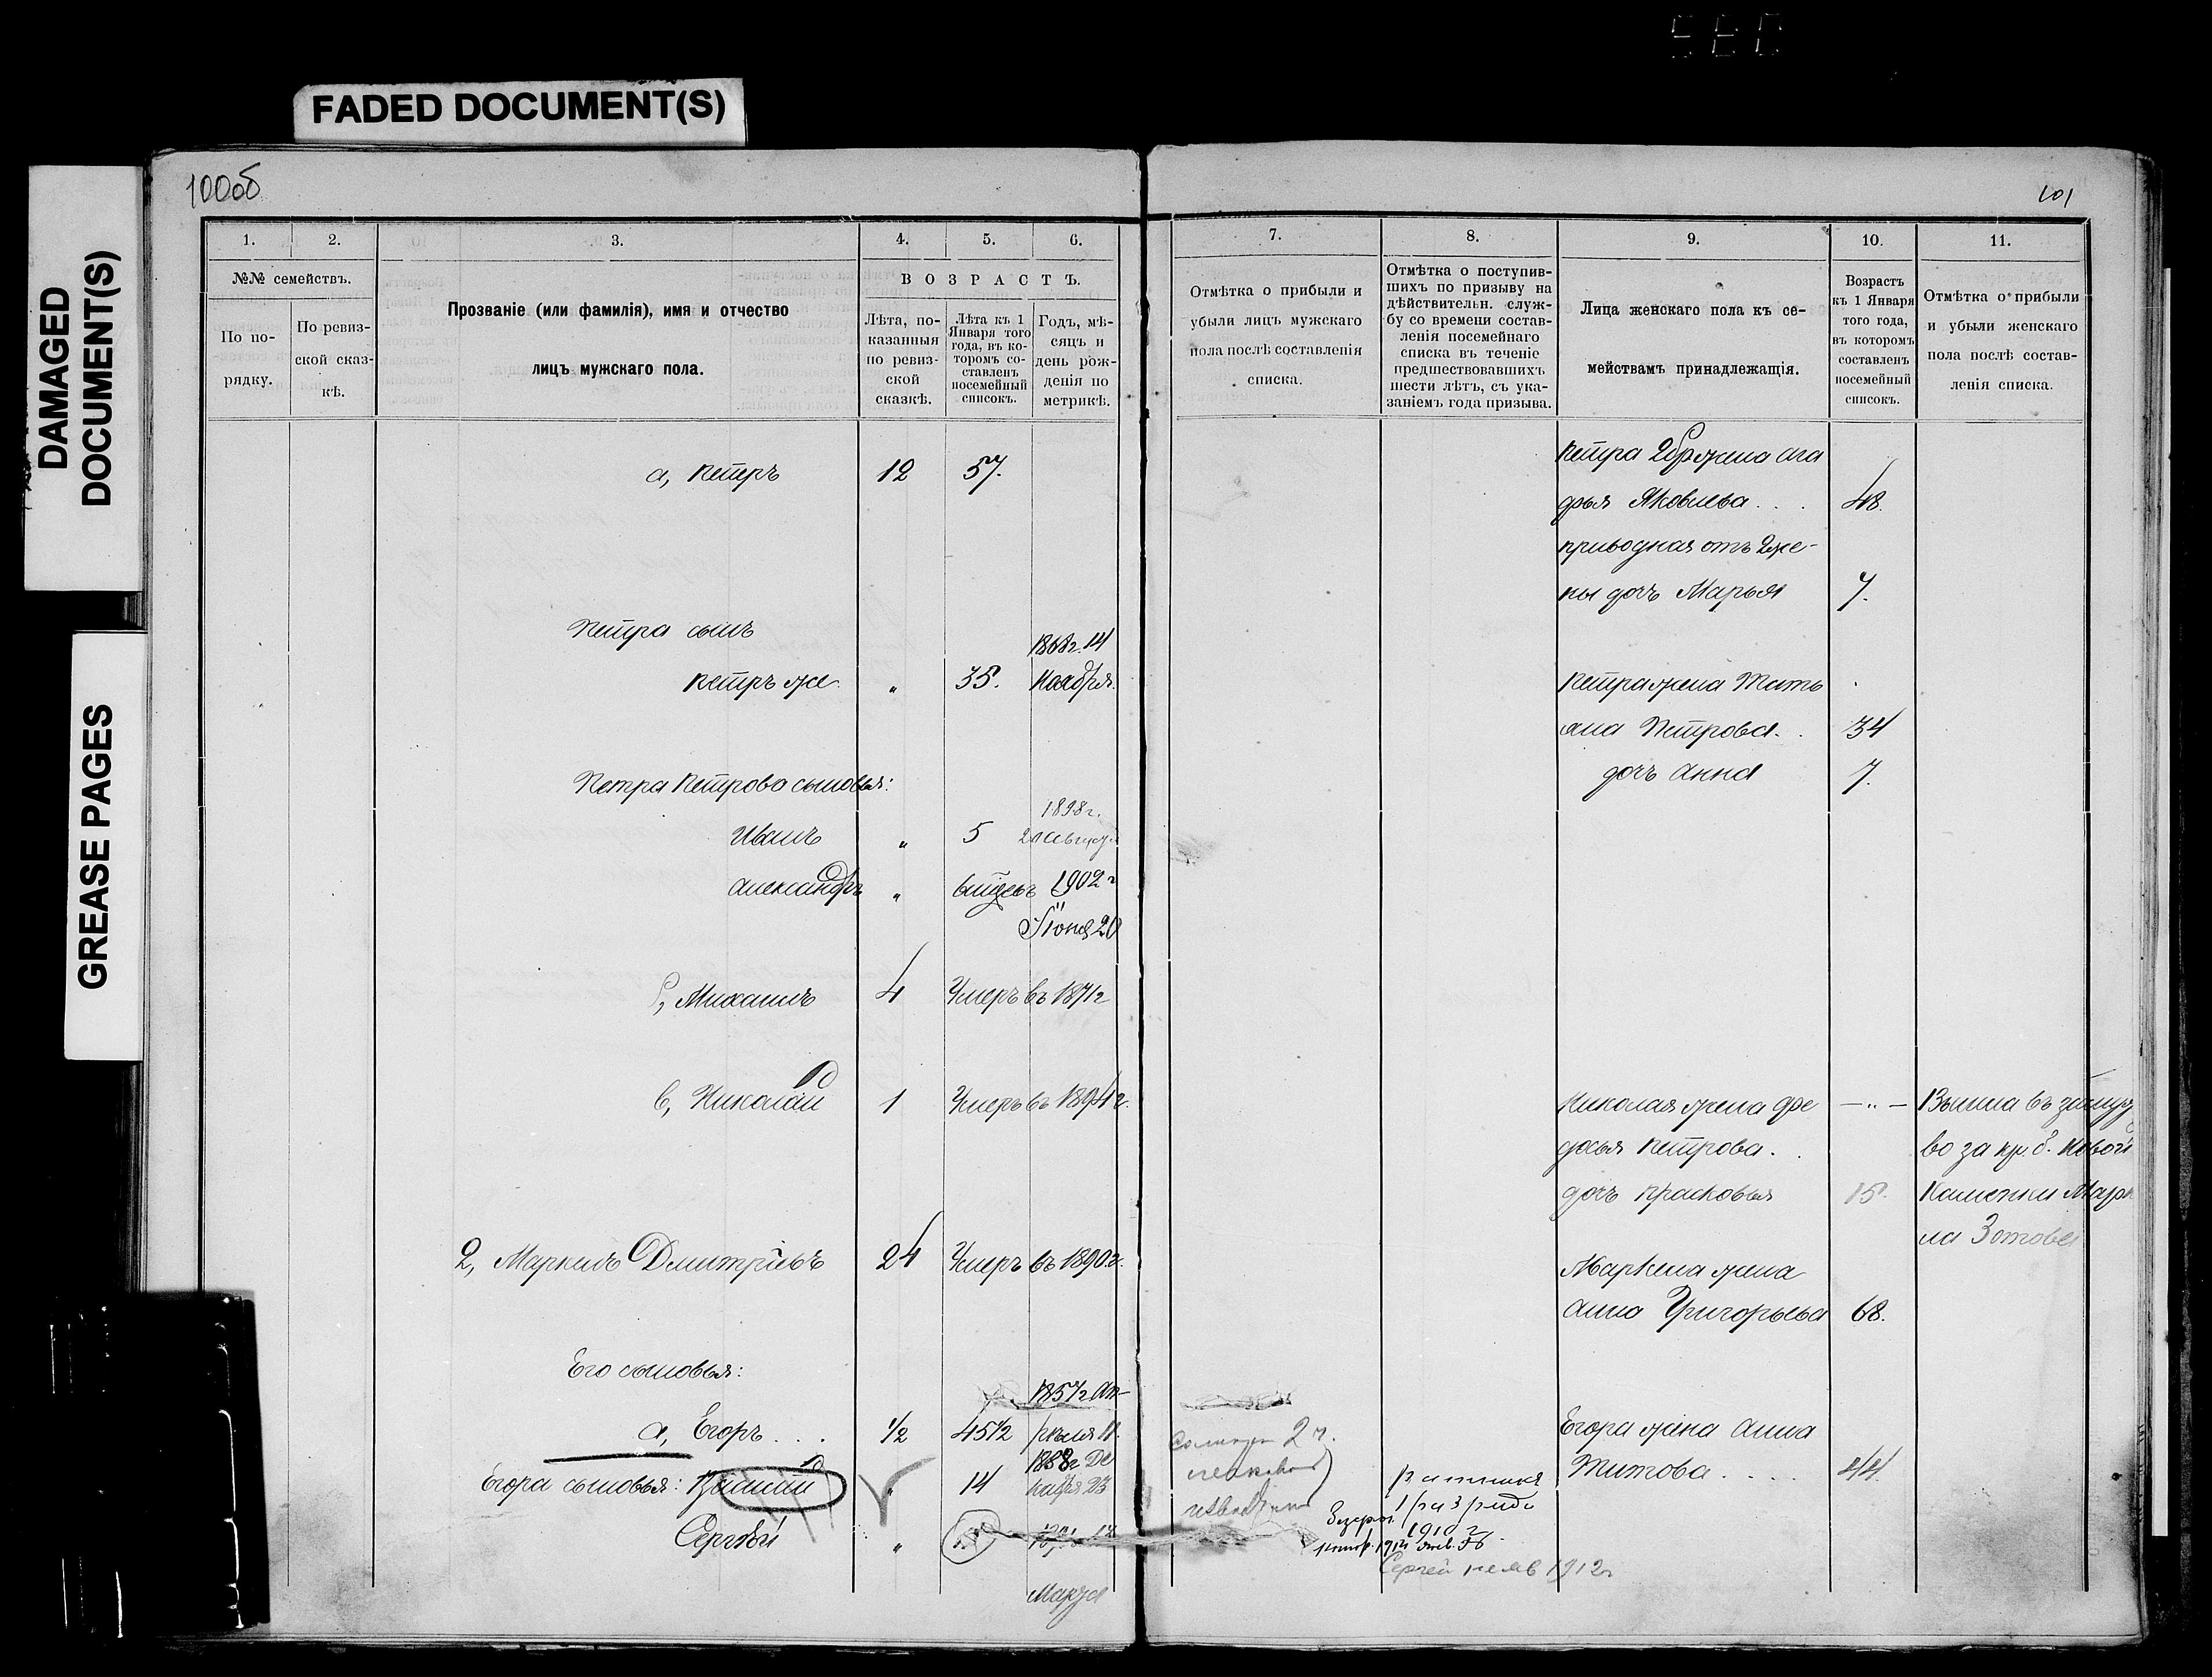 FADED DOCUMENT(S)
DAMAGED DOCUMENT(S)
GREASE PAGES
100об
101
1.
2.
3.
4.
5.
6.
7.
8.
9.
10.
11.
№№ семействъ.
По по-
рядку.
По ревиз-
ской сказ-
кѣ.
Прозваніе (или фамилія), имя и отчество
лицъ мужскаго пола.
ВОЗРАСТЪ.
Лѣта, по-
казанныя
по ревиз-
ской
сказкѣ.
Лѣта къ 1
Января того
года, въ ко-
торомъ со-
ставленъ
посемейный
списокъ.
Годъ, мѣ-
сяцъ и
день рож-
денія по
метрикѣ.
Отмѣтка о прибыли и
убыли лицъ мужскаго
пола послѣ составленія
списка.
Отмѣтка о поступив-
шихъ по призыву на
дѣйствительн. служ-
бу со времени состав-
ленія посемейнаго
списка въ теченіе
предшествовавшихъ
шести лѣтъ, съ ука-
заніемъ года призыва.
Лица женскаго пола къ се-
мействамъ принадлежащія.
Возрастъ
къ 1 Января
того года,
въ которомъ
составленъ
посемейный
списокъ.
Отмѣтка о прибыли
и убыли женскаго
пола послѣ состав-
ленія списка.
а, Петръ 12 57.
Петра 2бр жена Ага
фья Яковлева . . . 48.
приводная отъ 2 же-
ны дочь Марья 7.
Петра сынъ
1868г. 14
Петръ же " 35. Ноября.
Петра жена Тать
яна Петрова . . 34
дочь Анна 7.
Петра Петрова сыновья:
1898г.
Иванъ " 5
Александръ " 1902 г
Іюня 20
б, Михаилъ 4 Умеръ въ 1871г
в, Николай 1 Умеръ въ 1894г.
Николая жена Фе
досья Петрова . .
дочь Прасковья 15.
Вышла въ замуж
во за кр. д. Новой
Каменки Марк
ла Зотова
2, Маркелъ Дмитріевъ 24 Умеръ въ 1890.г.
Маркела жена
Анна Григорьева 68.
Его сыновья:
1857г Ап-
а, Егоръ . . . 1/2 45 1/2 рѣля 11.
Егора жена Анна
Титова . . . . 44.
Егора сыновья: Василій " 14
1888г Де
кабря 23
Сергѣй "
Марта
2 ч.
ратникъ
1 разряда
1910 г.
Сергей 1912г